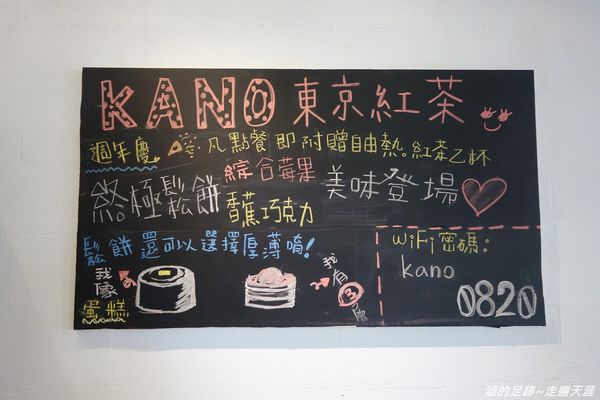 KANO 東京紅茶
週年慶 凡點餐即附贈自由熱紅茶乙杯
終極鬆餅 綜合莓果 美味登場
香蕉巧克力
鬆餅還可以選擇厚薄唷!
WiFi密碼:
kano
0820
我像
蛋糕
我有3層
涵的足跡~走遍天涯